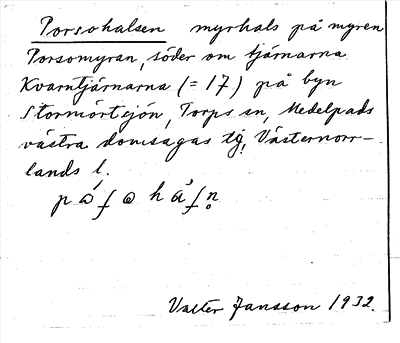 Porsohalsen myrhals på myren
Porsomyran, söder om tjärnarna
Kvarntjärnarna (= 17) på byn
Stormörtsjön, Torps sn, Medelpads
västra domsagas tg, Västernorr-
lands l.
Valter Jansson 1932.